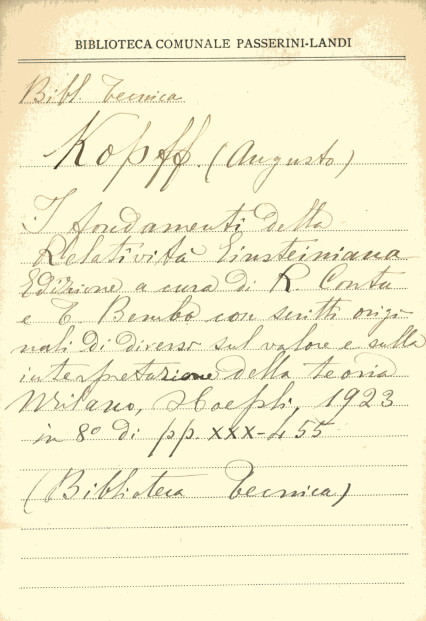 BIBLIOTECA COMUNALE PASSERINI-LANDI
Bibl. Tecnica
Kopff. (Augusto)
I fondamenti della
Relatività Einsteiniana
Edizione a cura di R. Contu
e T. Bembo con scritti origi
nali di diversi sul valore e sulla
interpretazione della teoria
Milano, Hoepli, 1923
in 8º di pp. XXX-455
(Biblioteca Tecnica)